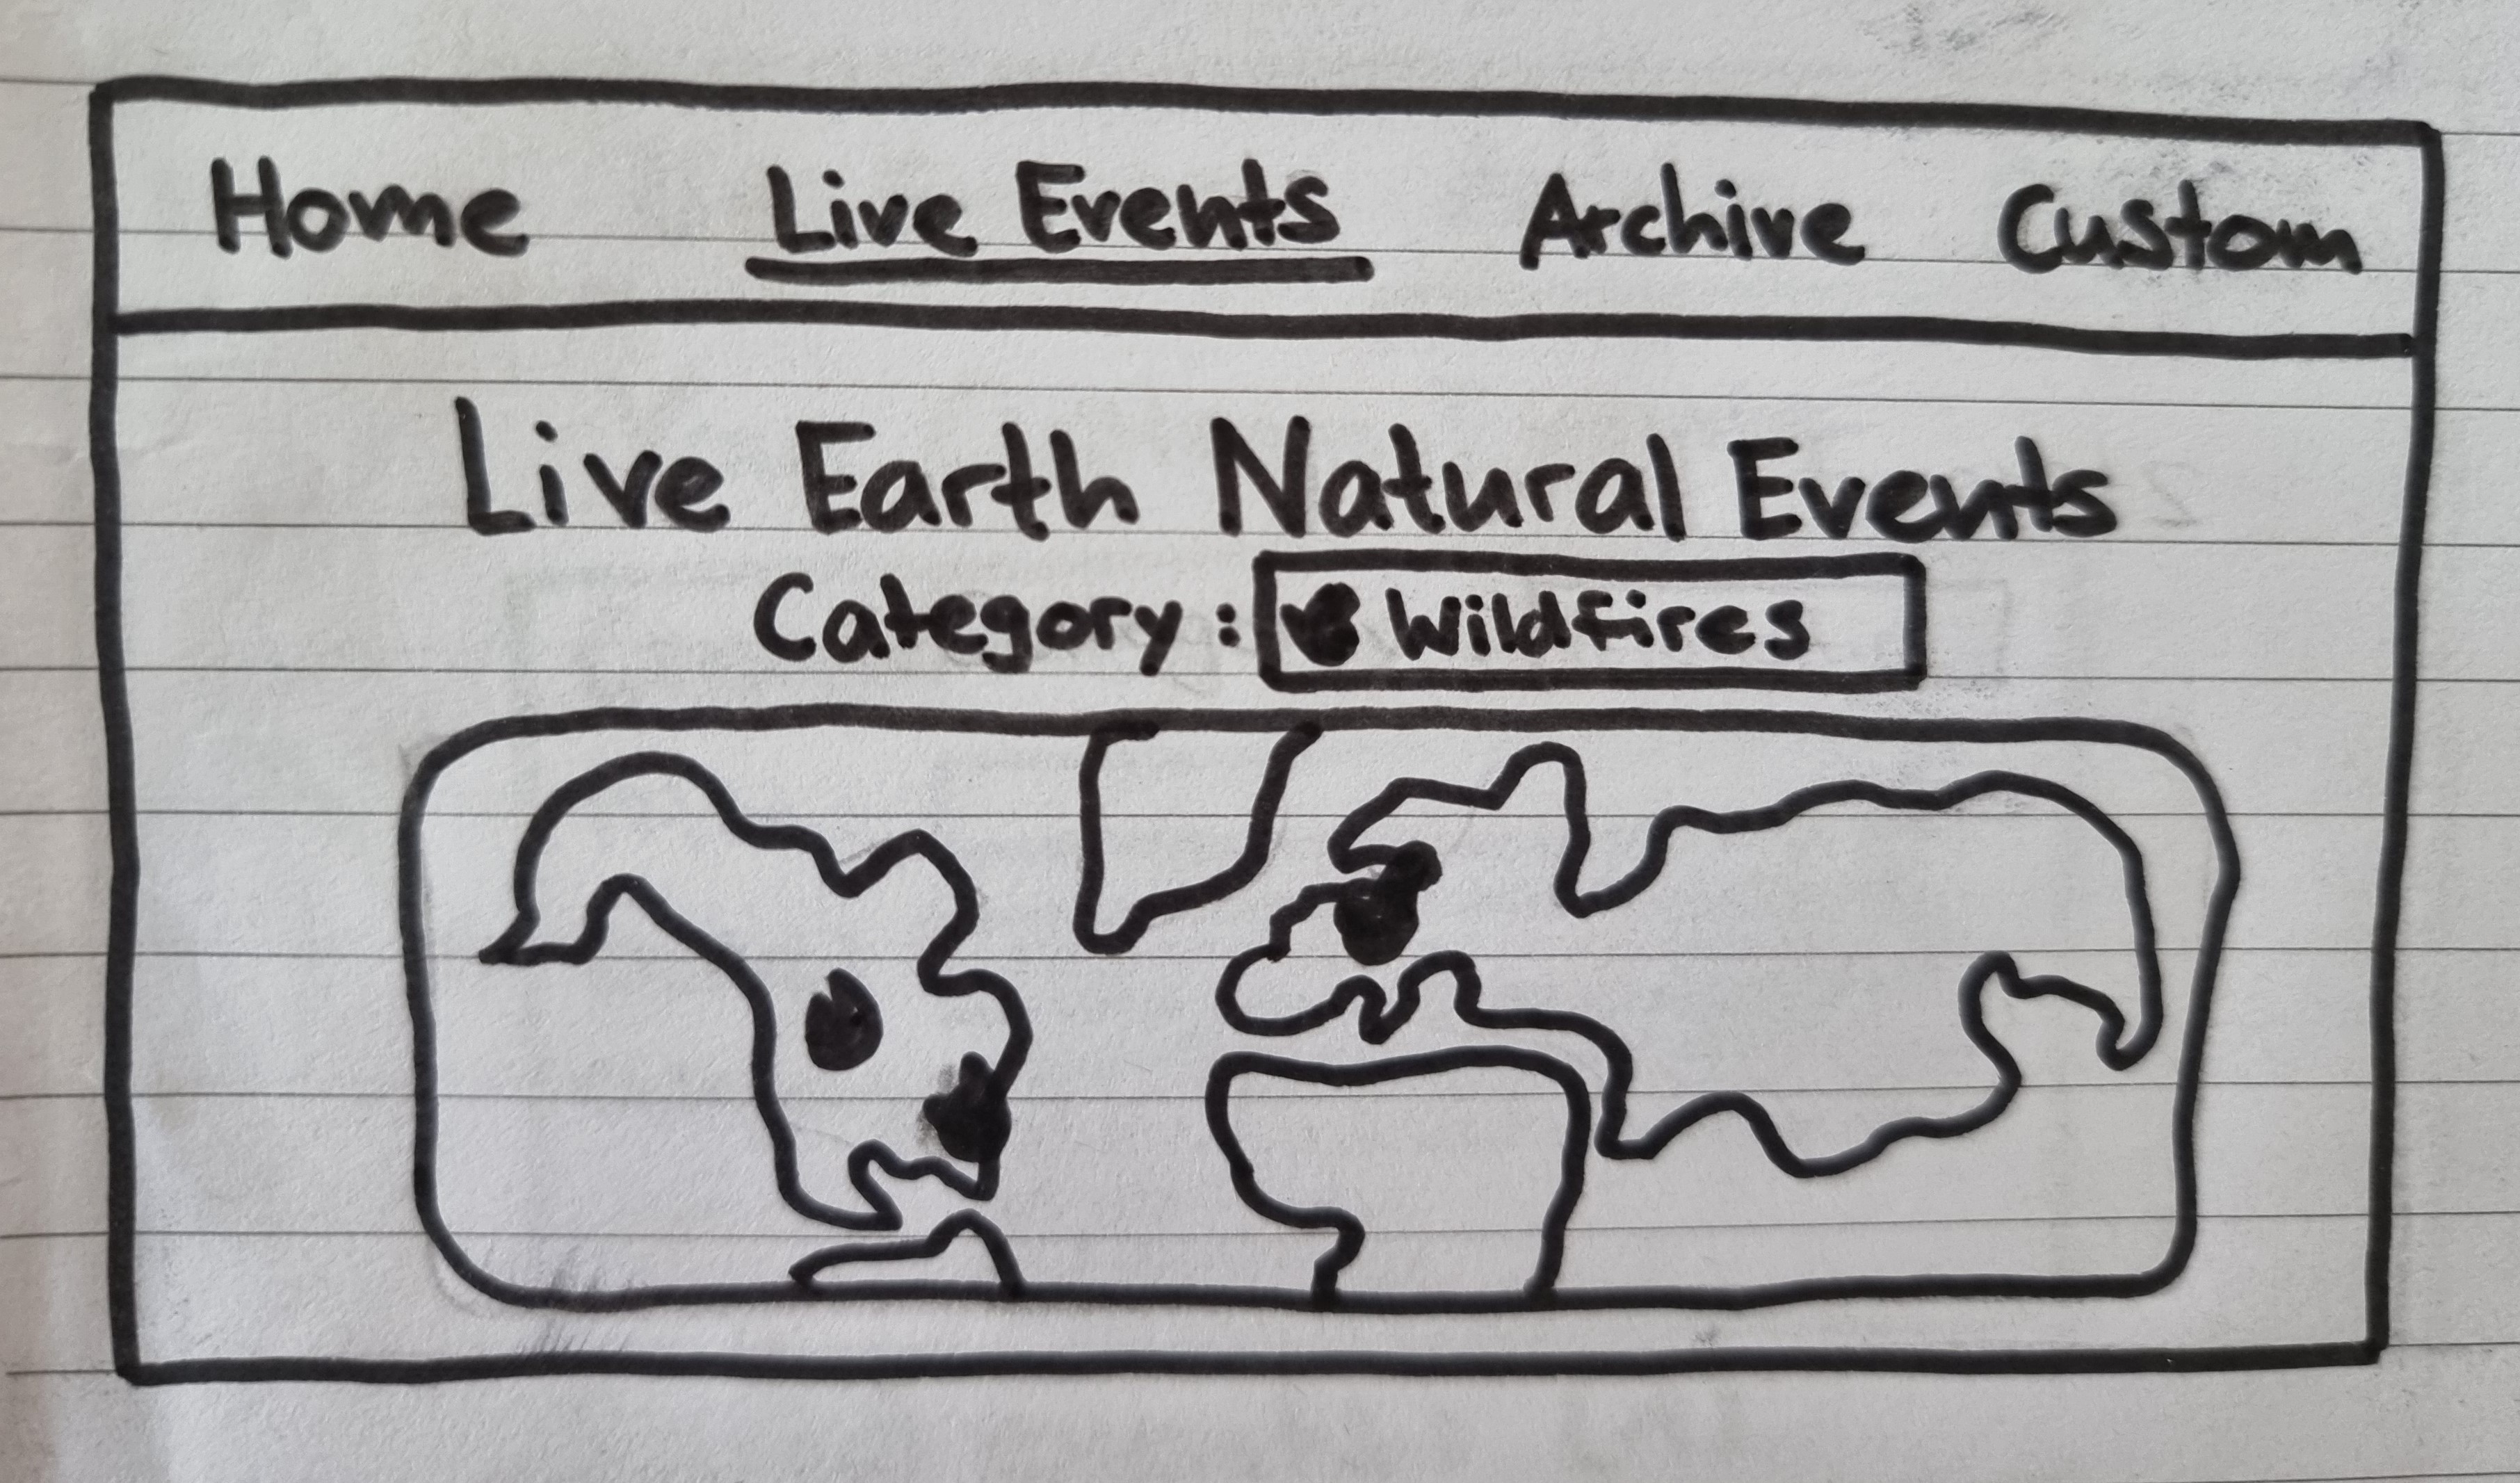 Home Live Events Archive Custom
Live Earth Natural Events
Category: Wildfires